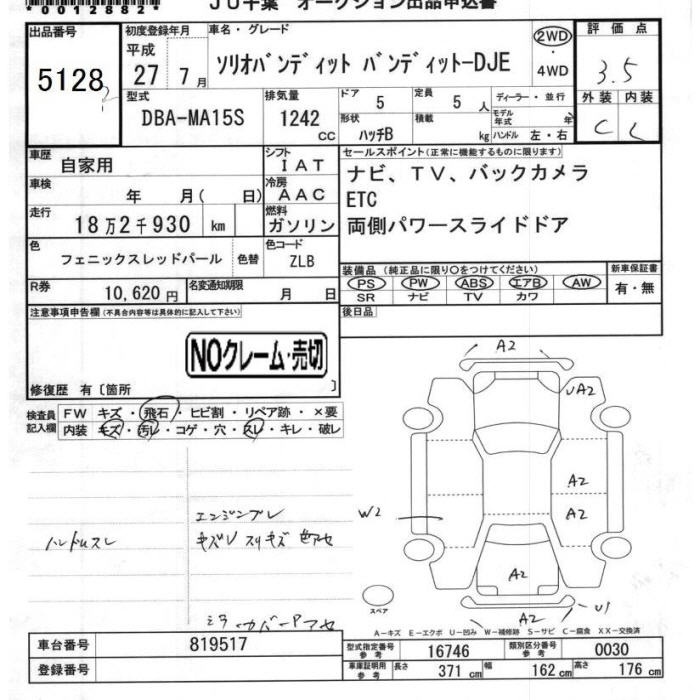 00128821
JU千葉 オークション出品申込書
出品番号
5128
初度登録年月
平成
27 7月
車名・グレード
ソリオバンディット バンディット-DJE
2WD
・
4WD
評価点
3.5
型式
DBA-MA15S
排気量
1242
CC
ドア
5
定員
5 人
形状
ハッチB
積載
kg
ディーラー・並行
モデル年式
年
ハンドル 左・右
外装 内装
C C
車歴
自家用
シフト
IAT
車検
年 月( 日)
冷房
AAC
走行
18万2千930 km
燃料
ガソリン
色
フェニックスレッドパール
色替
色コード
ZLB
R券
10,620円
名変通知期限
月 日
セールスポイント(正常に機能するものに限ります)
ナビ、TV、バックカメラ
ETC
両側パワースライドドア
装備品(純正品に限り○をつけてください)
PS PW ABS エアB AW
SR ナビ TV カワ
新車保証書
有・無
後日品
注意事項申告欄(不具合内容等は具体的に記入して下さい)
NOクレーム・売切
修復歴 有〔箇所 〕
検査員記入欄
FW キズ・飛石・ヒビ割・リペア跡・×要
内装 キズ・汚レ・コゲ・穴・スレ・キレ・破レ
ハンドルスレ
エンジンブレ
キズレ スリキズ 色アセ
ミラーカバーPアセ
A2
UA2
A2
A2
W2
A2
A2
U1
スペア
A-キズ E-エクボ U-凹み W-補修跡 S-サビ C-腐食 XX-交換済
車台番号
819517
登録番号
型式指定番号 参考
16746
類別区分番号 参考
0030
車庫証明用 参考
長さ 371 cm
幅 162 cm
高さ 176 cm